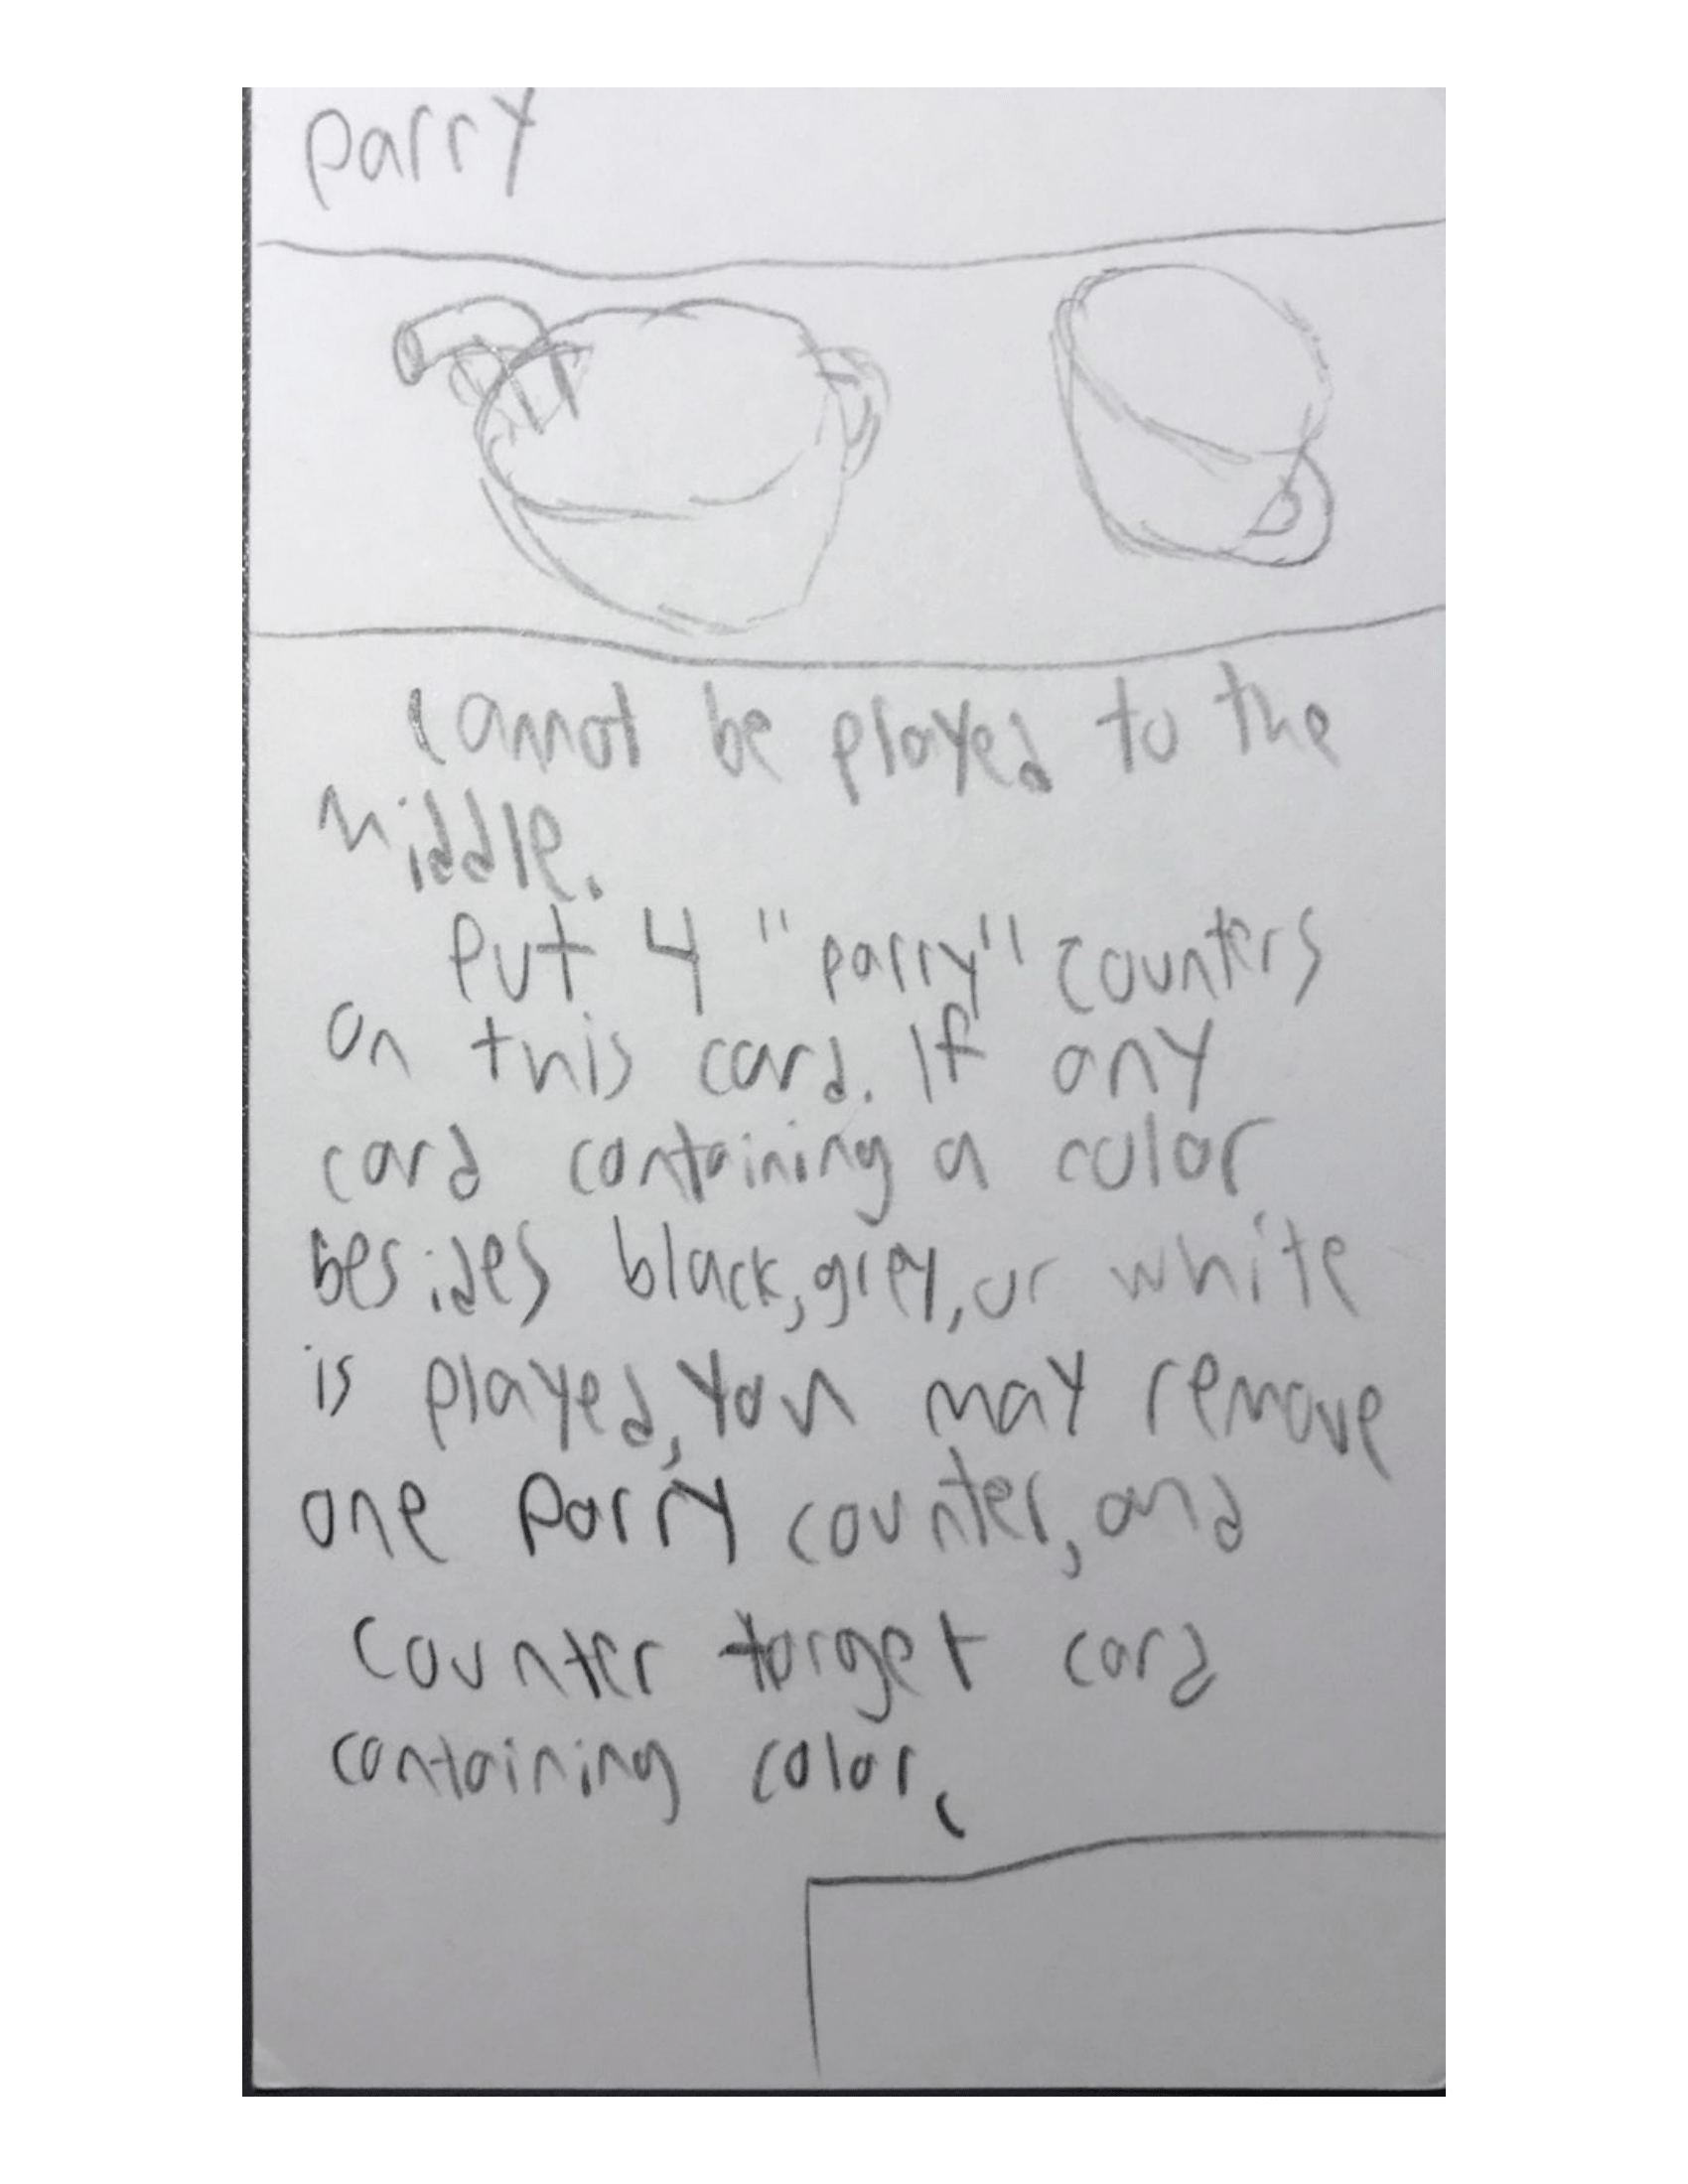 parry
cannot be played to the
middle.
Put 4 "parry" counters
on this card. If any
card containing a color
besides black, grey, or white
is played, you may remove
one parry counter, and
counter target card
containing color.